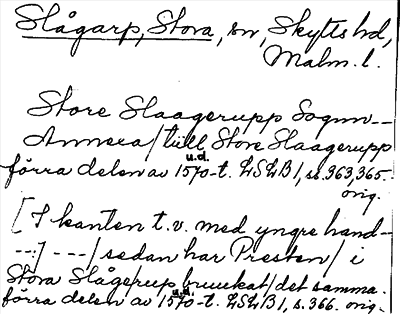 Slågarp, Stora, sn, Skytts hd,
Malm. l.
Store Slaagerupp Sognn--
Annexa/ till Store Slaagerupp
u.d.
förra delen av 1570-t. LSLB 1, s. 363, 365.
orig.
[I kanten t.v. med yngre hand-
--:] ---/ sedan har Presten/ i
Stora Slågerup bruukat/ det samma.
u.d.
förra delen av 1570-t. LSLB 1, s. 366. orig.